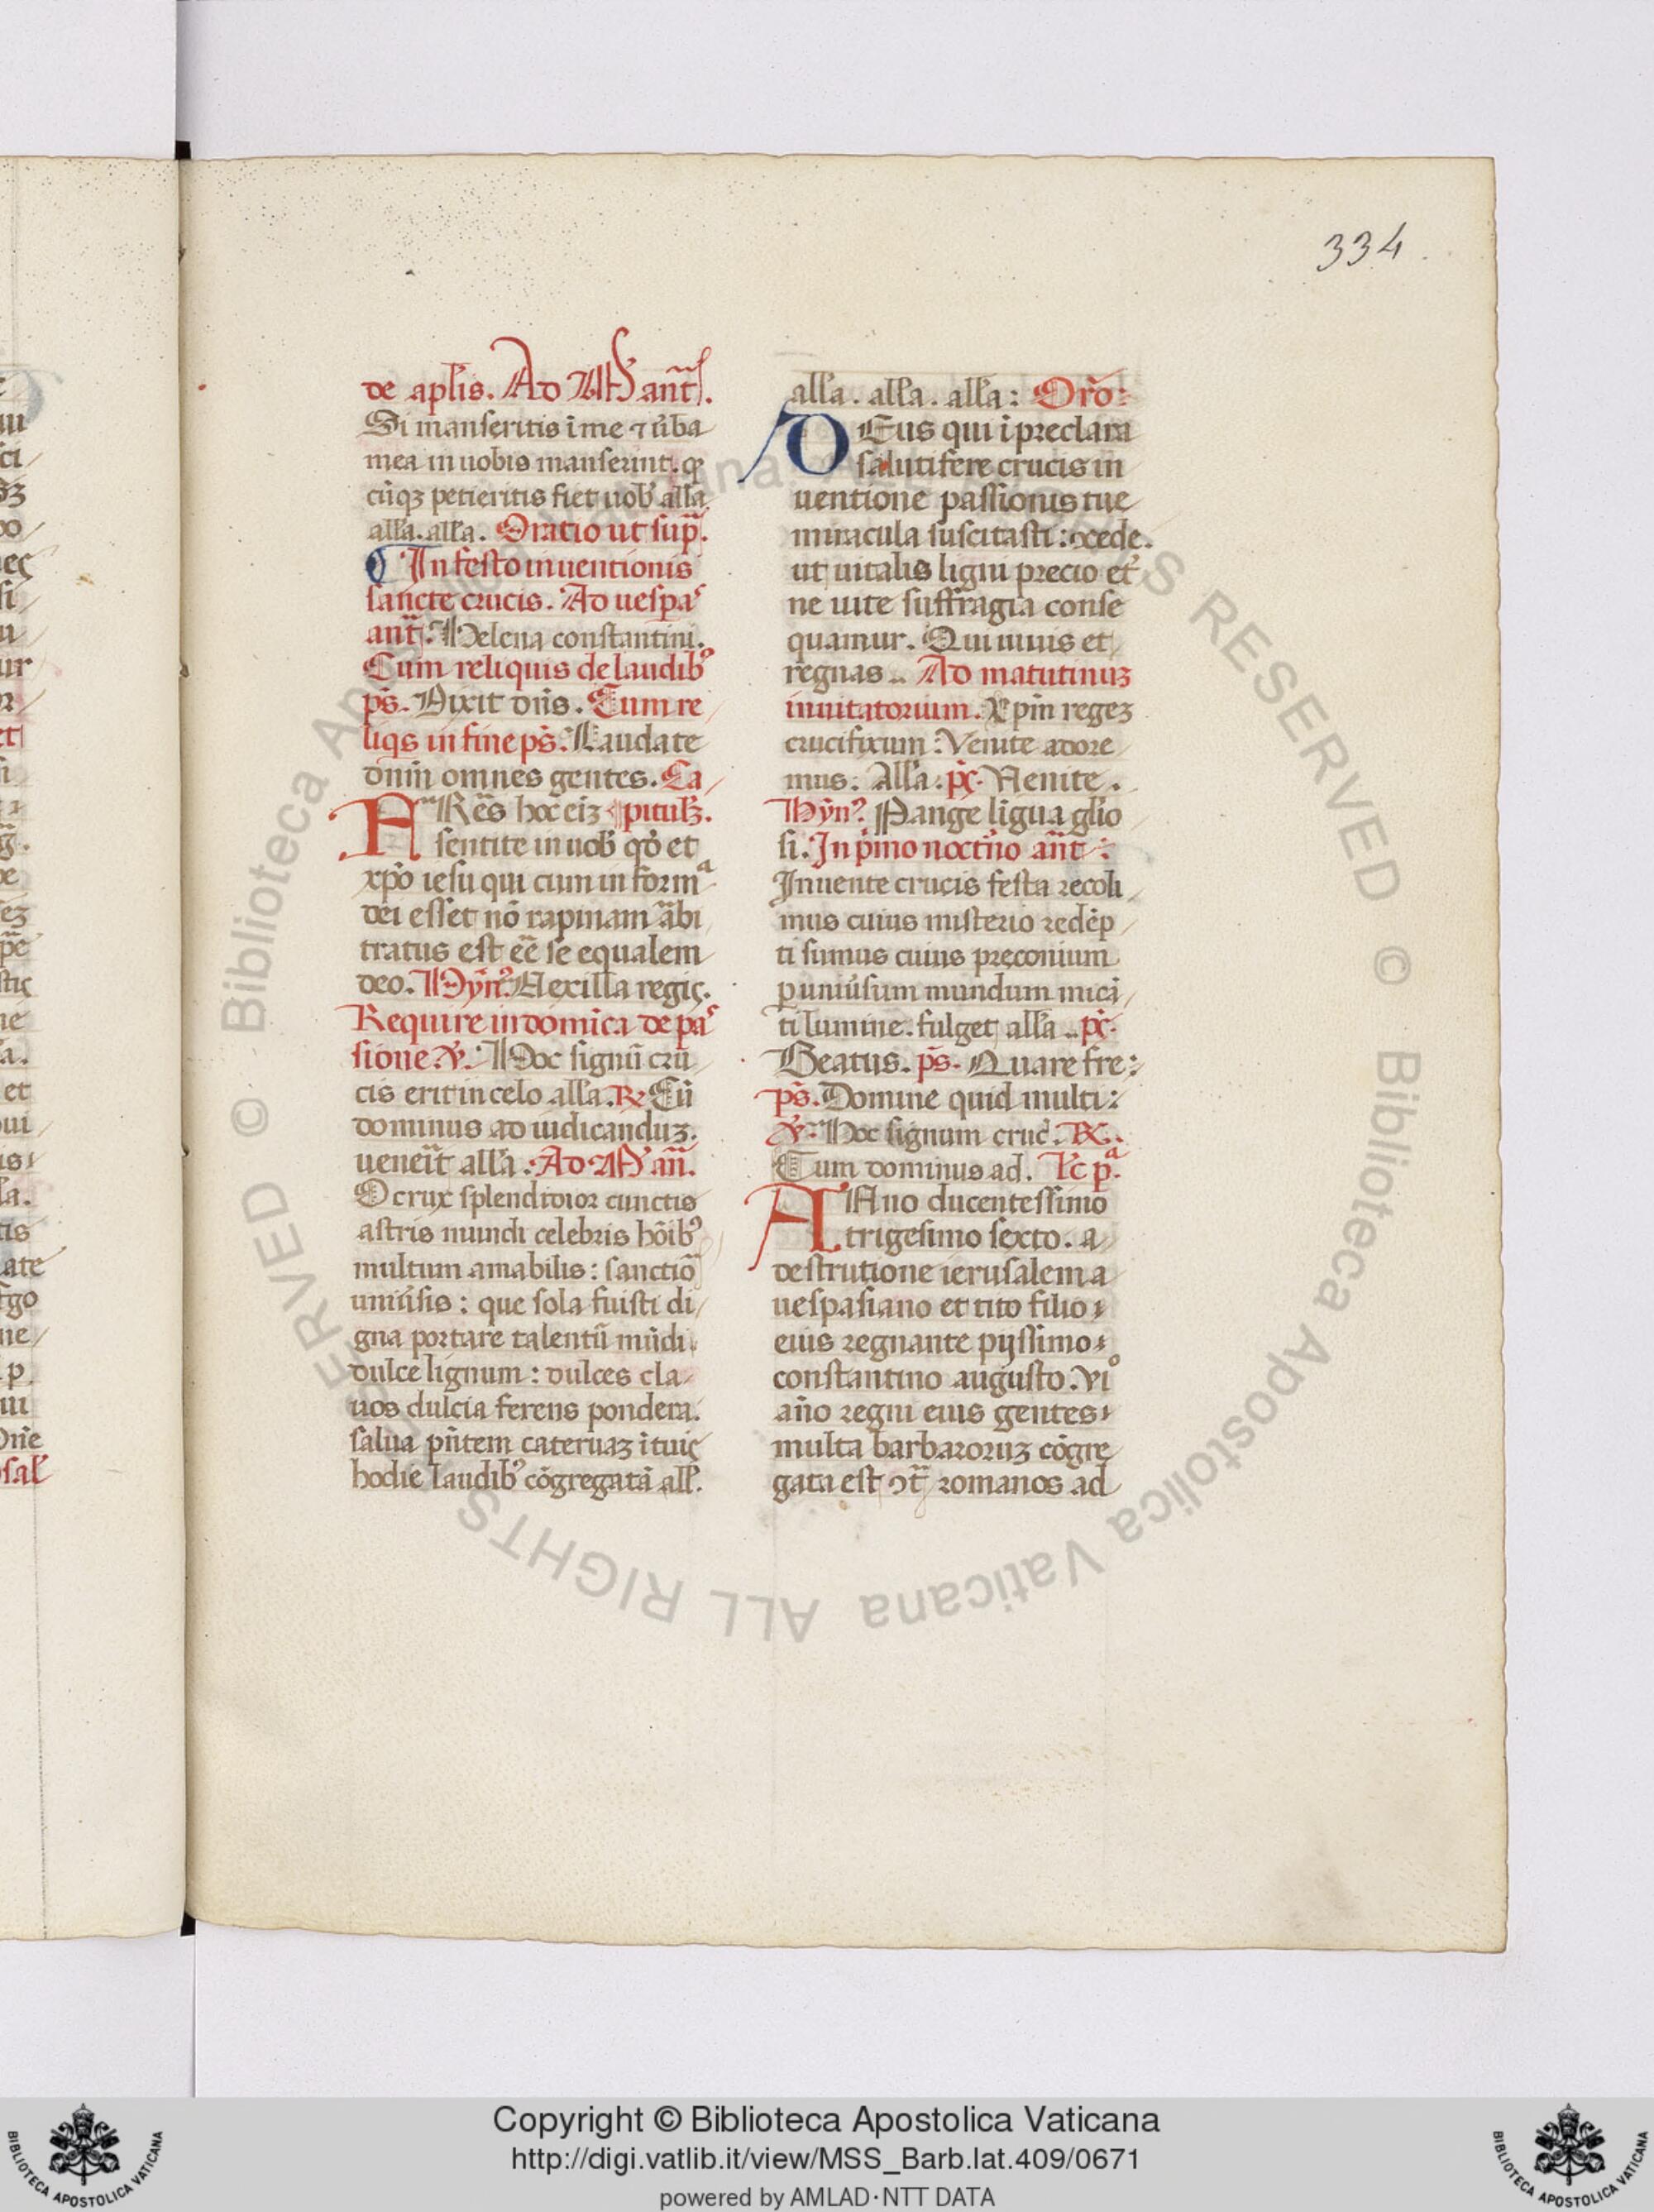 334
de apl̅is. Ad M̅ ant̅.
Si manseritis ī me ⁊ ūba
mea in uobis manserint. q
cūq3 petieritis fiet uob̅ all̅a
all̅a. all̅a. Oratio ut sup̅.
In festo inuentionis
sancte crucis. Ad uespas
ant̅. Helena constantini.
Cum reliquis de laudibꝰ
ps̅. Dixit dn̅s. Cum re
liqs in fine ps̅. Laudate
dn̅m omnes gentes. Ca
FRes̅ hoc ei3 pitul3.
sentite in uob̅ qd̅ et
xp̅o iesu qui cum in forma
dei esset nō rapinam ābi
tratus est ee̅ se equalem
deo. Hyn̅ꝰ. Vexilla regis.
Require in dom̅ica de pas
sione. ℣. Hoc signū cru
cis erit in celo all̅a. ℞ Cū
dominus ad iudicandu3.
uene̅it all̅a. Ad M̅ an̅.
O crux splendidior cunctis
astris mundi celebris hōibꝰ
multum amabilis: sanctio
uniūsis: que sola fuisti di
gna portare talentū mūdi
dulce lignum: dulces cla
uos dulcia ferens pondera.
salua pn̅tem caterua3 ī tuis
hodie laudibꝰ cōgregatā all̅.
all̅a. all̅a. all̅a: Or̅o:
DEus qui ī preclara
salutifere crucis in
uentione passionis tue
miracula suscitasti: ꝯcede.
ut uitalis ligni precio et̅
ne uite suffragia conse
quamur. Qui uiuis et
regnas. Ad matutinu3
inuitatorium. Xp̅m rege3
crucifixum: Venite adore
mus: All̅a. ps̅. Venite.
Hyn̅ꝰ. Pange līgua glīo
si. In pͥmo noct̅no an̅t:
Inuente crucis festa recoli
mus cuius misterio redēp
ti sumus cuius preconium
p uniūsum mundum mica
ti lumine. fulget all̅a. ps̅.
Beatus. ps̅. Quare fre:
ps̅. Domine quid multi:
℣. Hoc signum cruc̅. ℞.
Cum dominus ad. Lc̅ pͣ.
ANno ducentessimo
trigesimo sexto. a
destrutione ierusalem a
uespasiano et tito filio
eius regnante pijssimo
constantino augusto. vi°
an̅o regni eius gentes
multa barbaroru3 cōgre
gata est ꝯt̅ romanos ad
© Biblioteca Apostolica Vaticana ALL RIGHTS RESERVED
Copyright © Biblioteca Apostolica Vaticana
http://digi.vatlib.it/view/MSS_Barb.lat.409/0671
powered by AMLAD·NTT DATA
BIBLIOTECA APOSTOLICA VATICANA
BIBLIOTECA APOSTOLICA VATICANA